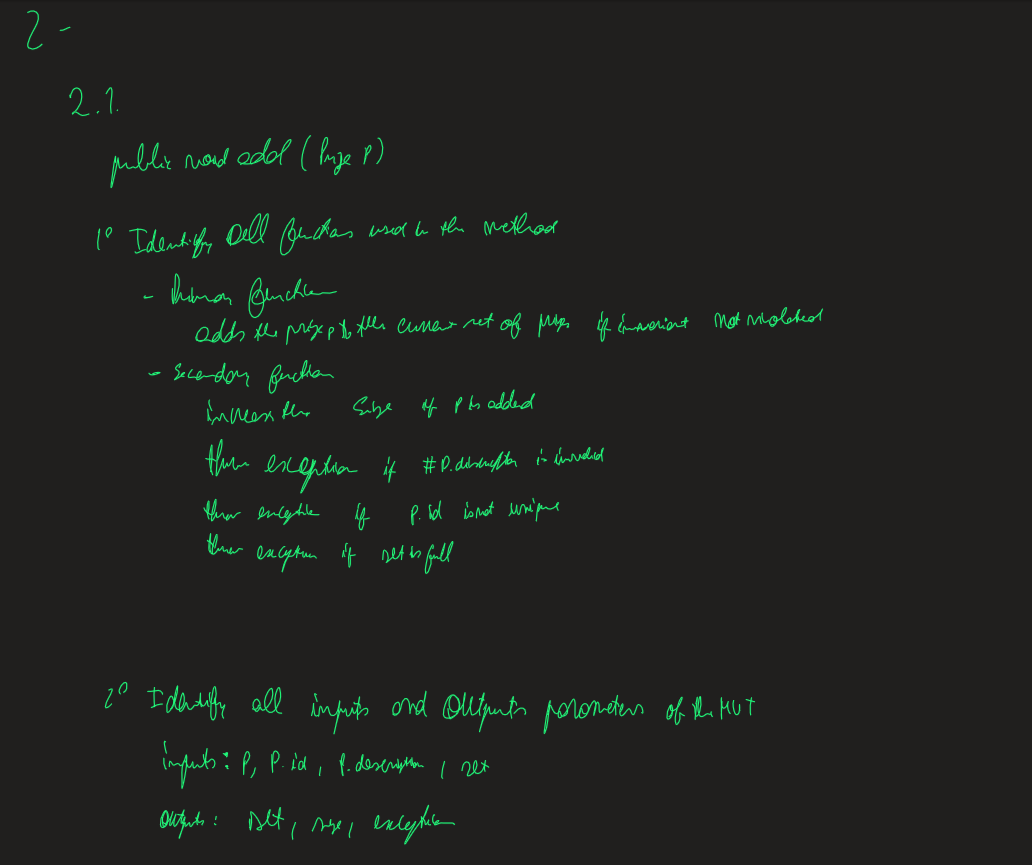 2 -
2.1.
public void add (Prize P)
1º Identify all functions used in the method
- Primary function
adds the prize p to the current set of prizes if invariant not violated
- Secondary function
increase the size if P is added
throw exception if #P.description is invalid
throw exception if p.id is not unique
throw exception if set is full
2º Identify all inputs and Outputs parameters of the MUT
inputs: P, P.id, P.description, set
outputs: set, size, exception